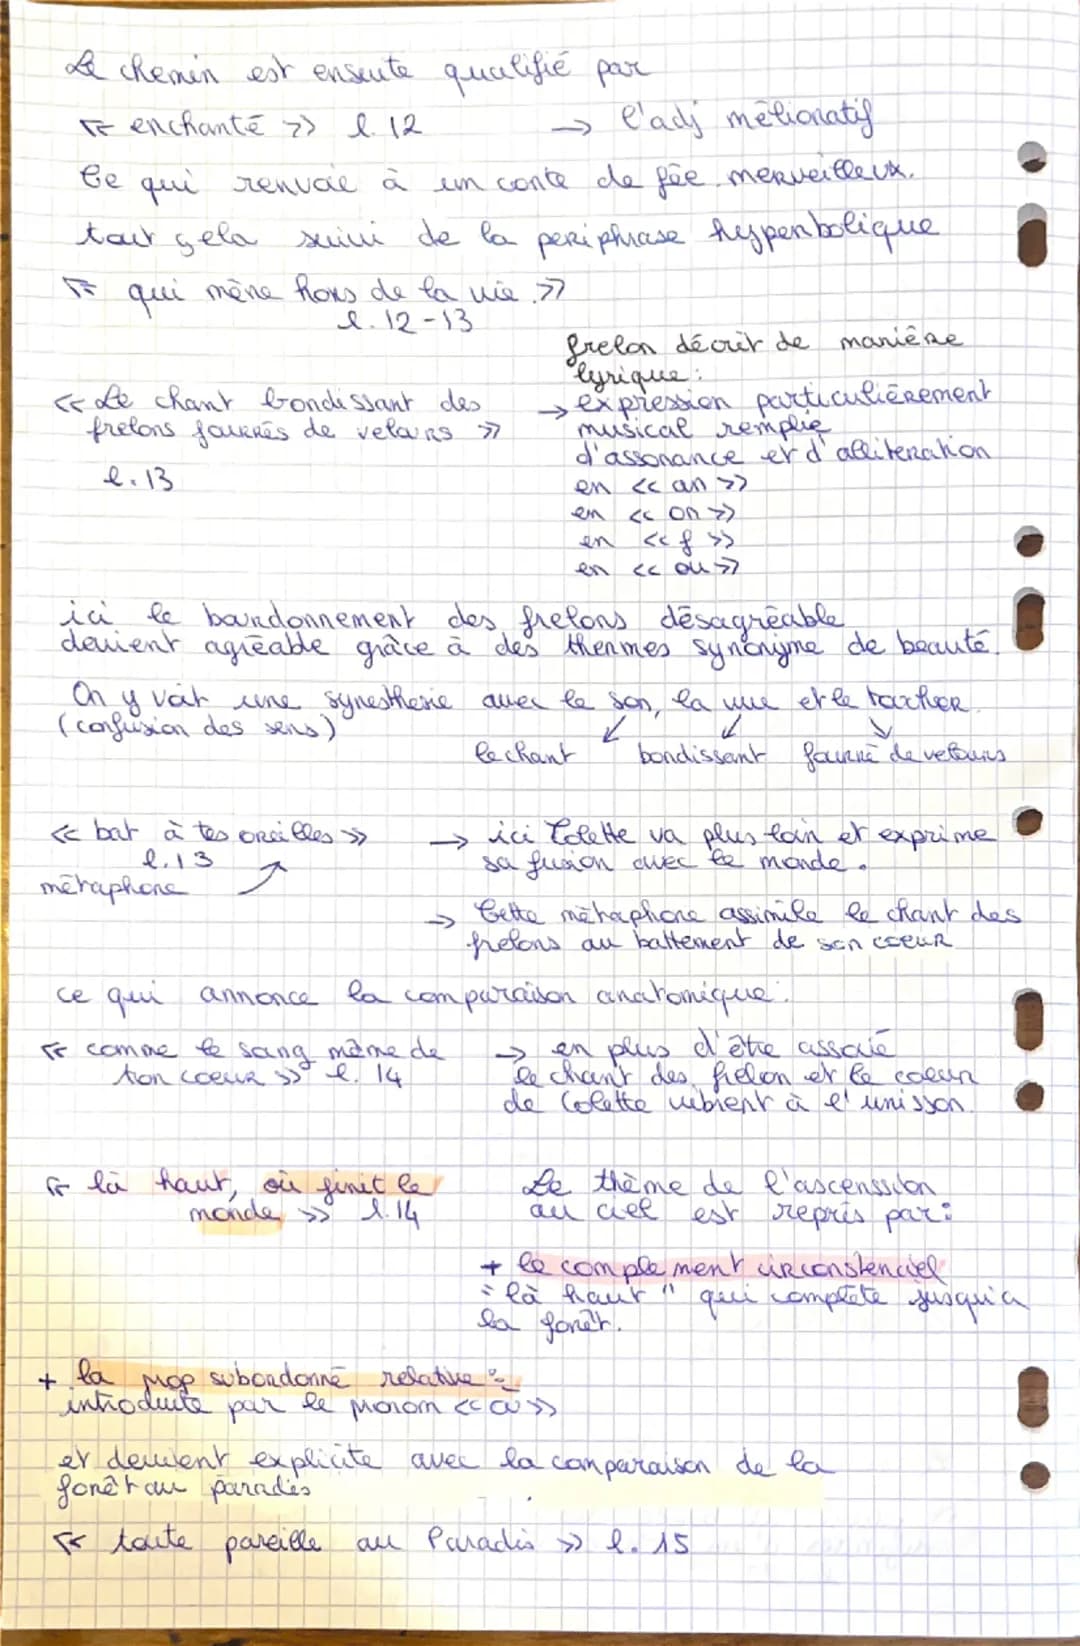 Le chemin est ensuite qualifié par
<< enchanté >> l.12 → l'adj mélioratif
Ce qui renvoie à un conte de fée merveilleux.
tout cela suivi de la periphrase hyperbolique
<< qui mène hors de la vie >>
l.12-13
frelon décrit de manière
lyrique :
<< Le chant bondissant des
frelons fourrés de velours >>
l.13
→ expression particulièrement
musical remplie
d'assonance et d'alliteration
en << an >>
en << on >>
en << f >>
en << ou >>
ici le bourdonnement des frelons désagréable
devient agréable grâce à des thermes synonyme de beauté.
On y voit une synesthesie avec le son, la vue et le toucher.
(confusion des sens)
le chant bondissant fourré de velours
<< bat à tes oreilles >>
l.13
métaphore
→ ici Colette va plus loin et exprime
sa fusion avec le monde.
→ Cette métaphore assimile le chant des
frelons au battement de son coeur
ce qui annonce la comparaison anatomique :
<< comme le sang même de
ton coeur >> l.14
→ en plus d'être associé
le chant des frelon et le coeur
de Colette vibrent à l'unisson.
<< là haut, où finit le
monde >> l.14
Le thème de l'ascenssion
au ciel est repris par :
+ le complement circonstenciel
"là haut" qui complète jusqu'a
la forêt.
+ la prop subordonné relative :
introduite par le pronom << où >>
et devient explicite avec la comparaison de la
forêt au paradis
<< toute pareille au Paradis >> l.15